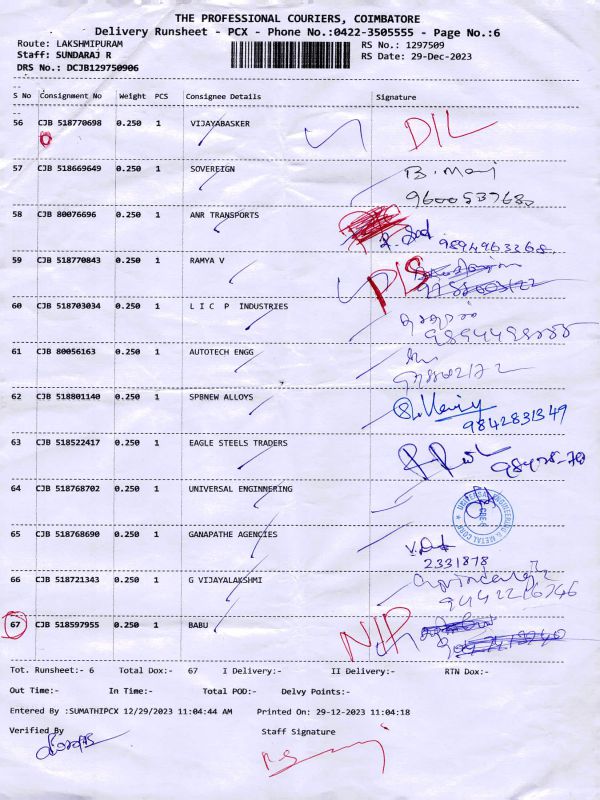 THE PROFESSIONAL COURIERS, COIMBATORE
Delivery Runsheet - PCX - Phone No.:0422-3505555 - Page No.:6
Route: LAKSHMIPURAM RS No.: 1297509
Staff: SUNDARAJ R RS Date: 29-Dec-2023
DRS No.: DCJB129750906
S No Consignment No Weight PCS Consignee Details Signature
56 CJB 518770698 0.250 1 VIJAYABASKER DIL
57 CJB 518669649 0.250 1 SOVEREIGN B. Mani
9600537680
58 CJB 80076696 0.250 1 ANR TRANSPORTS
9894963368
59 CJB 518770843 0.250 1 RAMYA V DIS
60 CJB 518703034 0.250 1 L I C P INDUSTRIES
61 CJB 80056163 0.250 1 AUTOTECH ENGG
62 CJB 518801140 0.250 1 SPBNEW ALLOYS
9842831349
63 CJB 518522417 0.250 1 EAGLE STEELS TRADERS
64 CJB 518768702 0.250 1 UNIVERSAL ENGINNERING
UNIVERSAL ENGINEERING & METAL CORP
65 CJB 518768690 0.250 1 GANAPATHE AGENCIES
2331878
66 CJB 518721343 0.250 1 G VIJAYALAKSHMI
9442216746
67 CJB 518597955 0.250 1 BABU N/P
Tot. Runsheet:- 6 Total Dox:- 67 I Delivery:- II Delivery:- RTN Dox:-
Out Time:- In Time:- Total POD:- Delvy Points:-
Entered By :SUMATHIPCX 12/29/2023 11:04:44 AM Printed On: 29-12-2023 11:04:18
Verified By Staff Signature